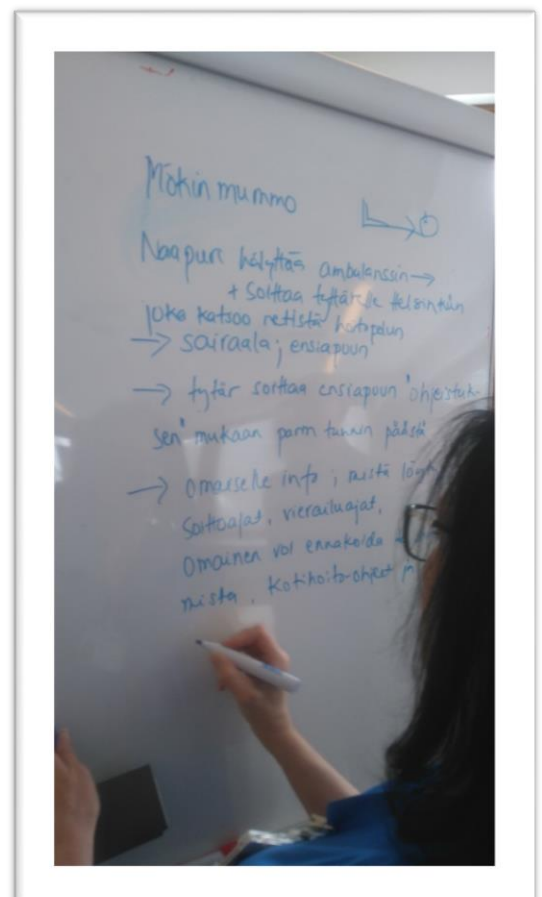 Mökin mummo
Naapuri hälyttää ambulanssin →
+ soittaa tyttärelle Helsinkiin
joka katsoo netistä hoitopolun
→ sairaala; ensiapuun
→ tytär soittaa ensiapuun "ohjeistuk-
sen" mukaan parin tunnin päästä
→ Omaiselle info; mistä
Soittoajat, vierailuajat,
Omainen voi ennakoida
mista, Kotihoito-ohjeet